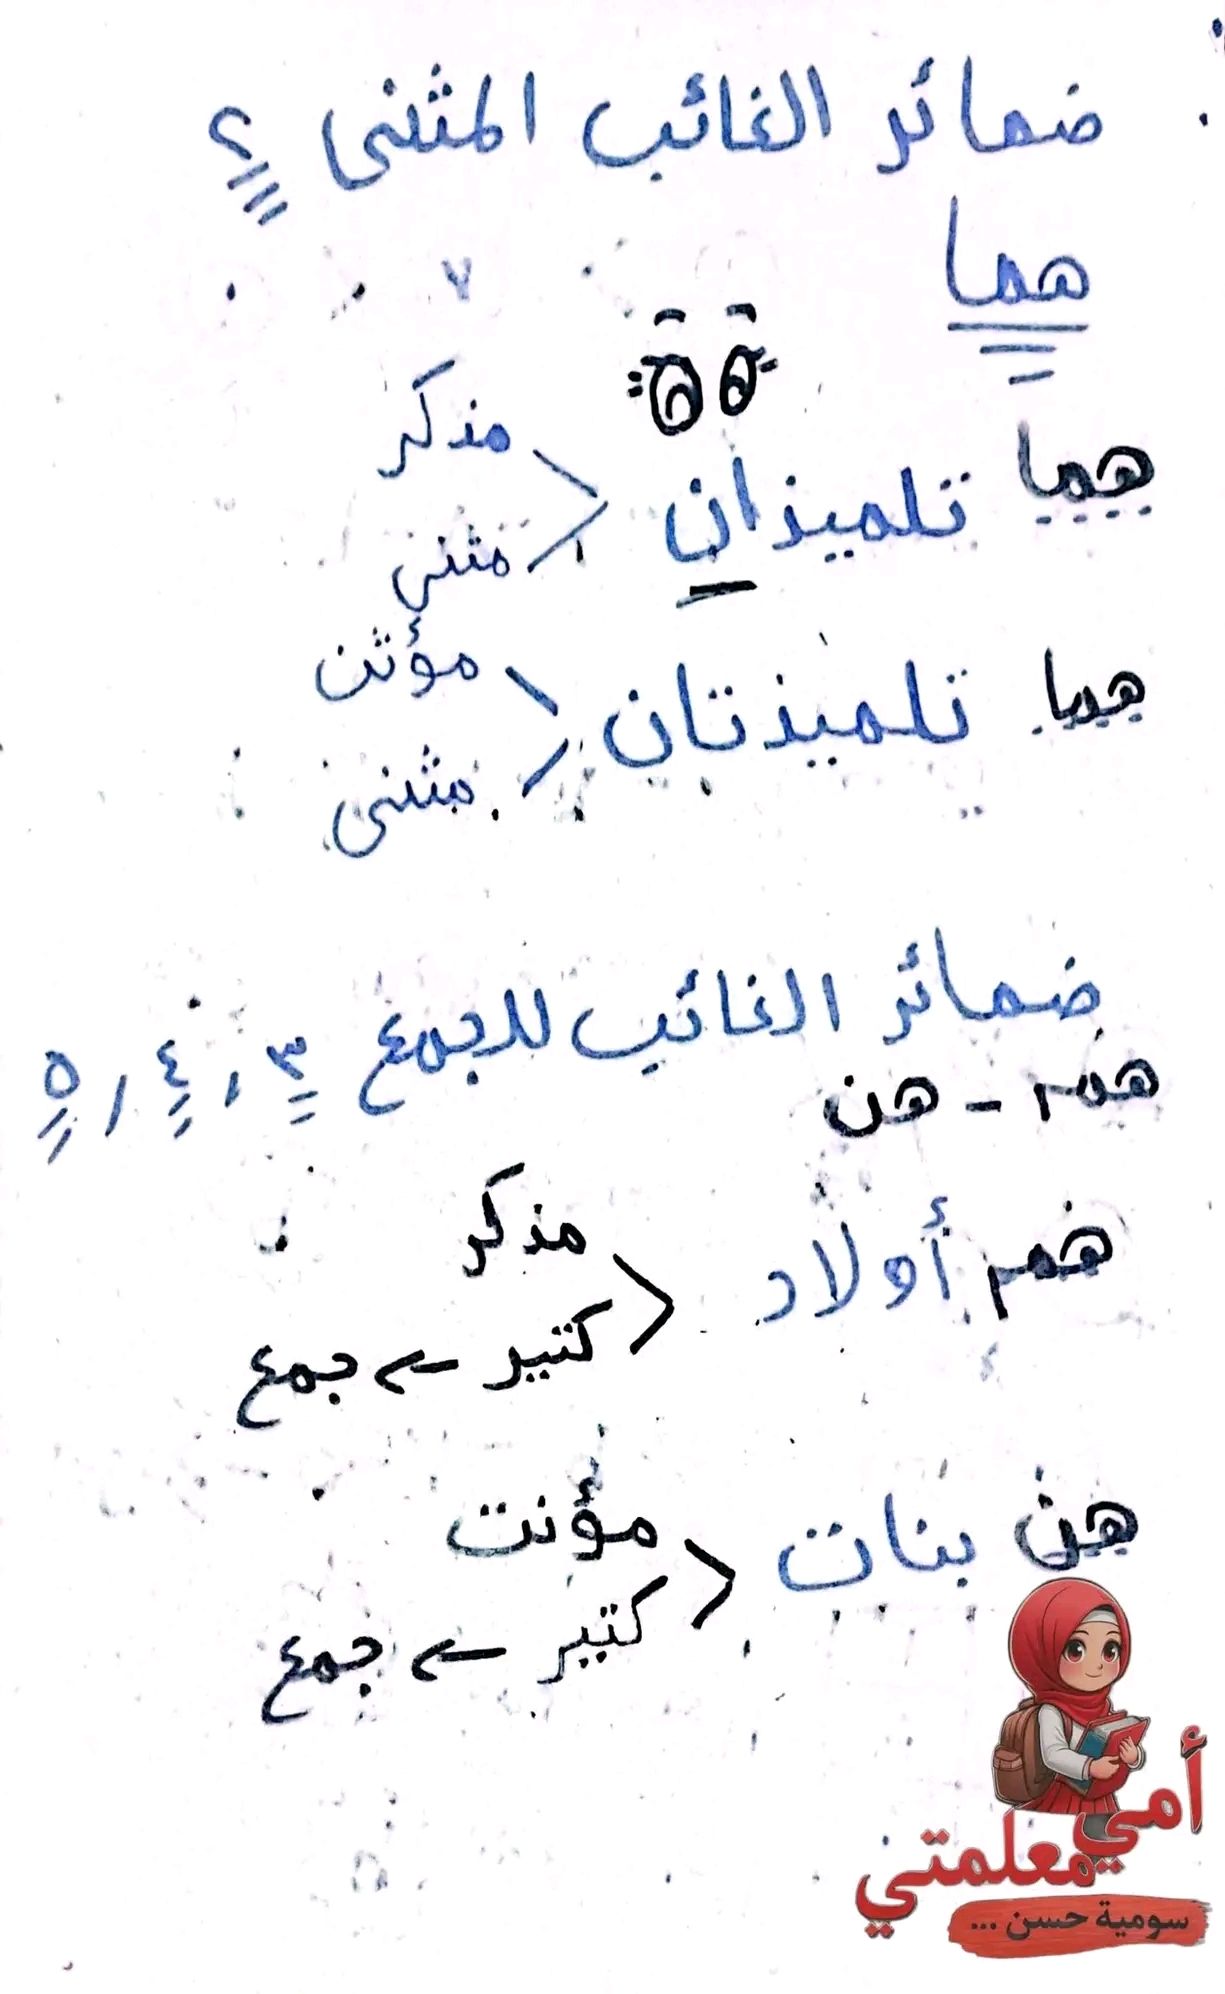 ضمائر الغائب المثنى ٢
هما
هما تلميذان < مذكر
مثنى
هما تلميذتان < مؤنث
مثنى
ضمائر الغائب للجمع ٣ , ٤ , ٥
هم - هن
هم أولاد < مذكر
كتير ← جمع
هن بنات < مؤنت
كتير ← جمع
أمي
معلمتي
سومية حسن ...